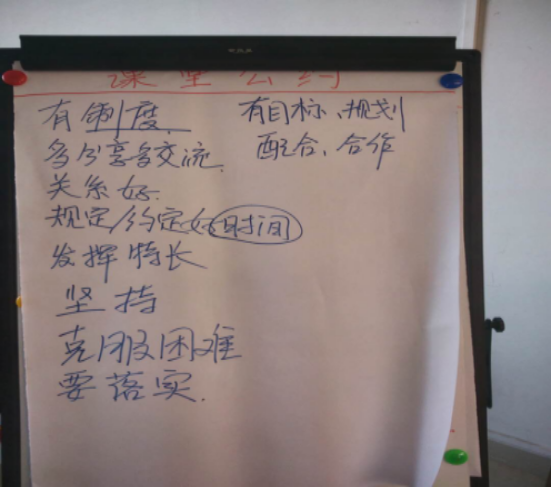 课堂公约
有制度.
多分享多交流.
关系好.
规定/约定好时间
发挥特长
坚持
克服困难
要落实.
有目标、规划
配合、合作